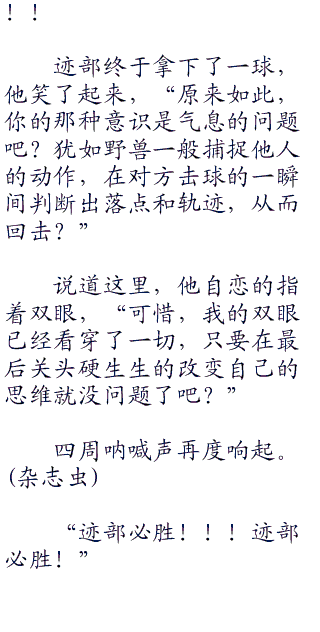 ！！
迹部终于拿下了一球，
他笑了起来，“原来如此，
你的那种意识是气息的问题
吧？犹如野兽一般捕捉他人
的动作，在对方击球的一瞬
间判断出落点和轨迹，从而
回击？”
说道这里，他自恋的指
着双眼，“可惜，我的双眼
已经看穿了一切，只要在最
后关头硬生生的改变自己的
思维就没问题了吧？”
四周呐喊声再度响起。
(杂志虫)
“迹部必胜！！！迹部
必胜！”